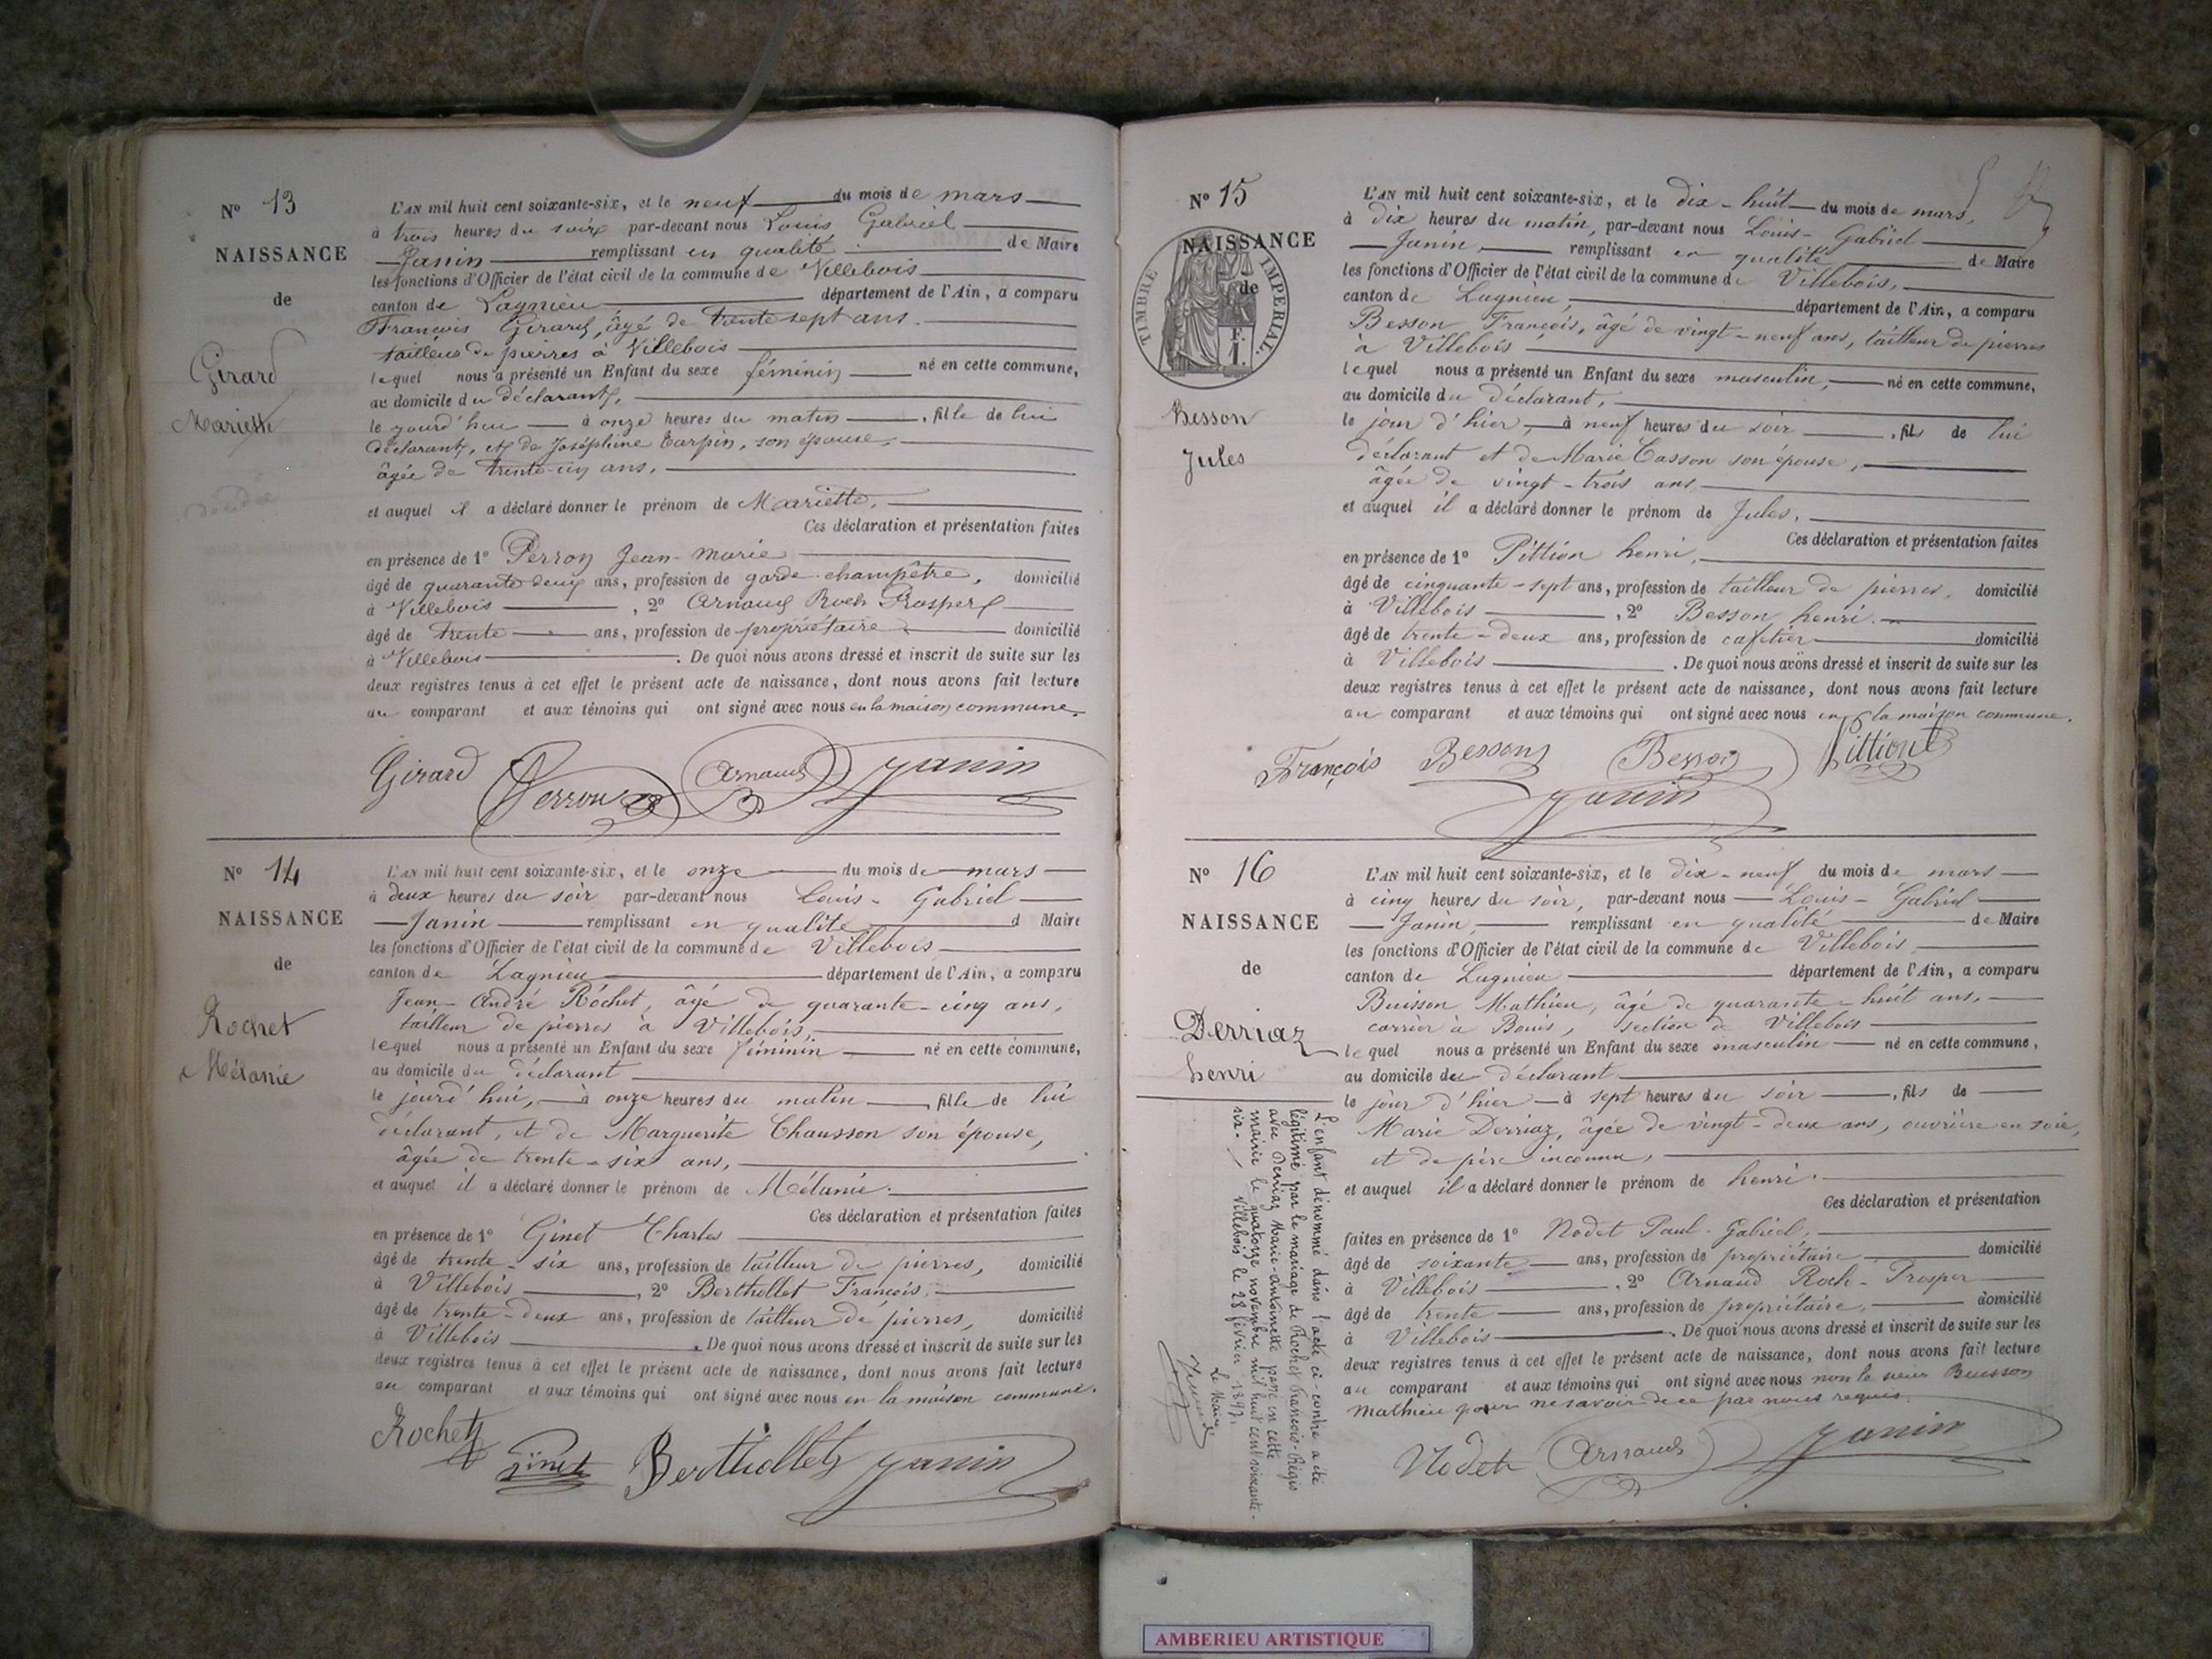 N° 13
NAISSANCE
de
Girard
Mariette
décédée
L'AN mil huit cent soixante-six, et le neuf du mois de mars
à trois heures du soir, par-devant nous Louis Gabriel
Janin remplissant en qualité de Maire
les fonctions d'Officier de l'état civil de la commune de Villebois
canton de Lagnieu département de l'Ain, a comparu
François Girard, âgé de trente sept ans
tailleur de pierres à Villebois
lequel nous a présenté un Enfant du sexe féminin né en cette commune,
au domicile du déclarant,
le jourd'hui à onze heures du matin, fille de lui
déclarant, et de Joséphine Carpin, son épouse,
âgée de trente-un ans,
et auquel il a déclaré donner le prénom de Mariette.
Ces déclaration et présentation faites
en présence de 1° Perron Jean-Marie
âgé de quarante deux ans, profession de garde-champêtre, domicilié
à Villebois, 2° Arnaud Roch Prosper
âgé de trente ans, profession de propriétaire domicilié
à Villebois. De quoi nous avons dressé et inscrit de suite sur les
deux registres tenus à cet effet le présent acte de naissance, dont nous avons fait lecture
au comparant et aux témoins qui ont signé avec nous en la maison commune.
Girard Perron Arnaud Janin
N° 14
NAISSANCE
de
Rochet
Mélanie
L'AN mil huit cent soixante-six, et le onze du mois de mars
à deux heures du soir par-devant nous Louis-Gabriel
Janin remplissant en qualité d Maire
les fonctions d'Officier de l'état civil de la commune de Villebois
canton de Lagnieu département de l'Ain, a comparu
Jean-André Rochet, âgé de quarante-cinq ans,
tailleur de pierres à Villebois,
lequel nous a présenté un Enfant du sexe féminin né en cette commune,
au domicile du déclarant
le jourd'hui, à onze heures du matin, fille de lui
déclarant, et de Marguerite Chausson son épouse,
âgée de trente-six ans,
et auquel il a déclaré donner le prénom de Mélanie.
Ces déclaration et présentation faites
en présence de 1° Ginet Charles
âgé de trente-six ans, profession de tailleur de pierres, domicilié
à Villebois, 2° Berthollet François,
âgé de trente-deux ans, profession de tailleur de pierres, domicilié
à Villebois. De quoi nous avons dressé et inscrit de suite sur les
deux registres tenus à cet effet le présent acte de naissance, dont nous avons fait lecture
au comparant et aux témoins qui ont signé avec nous en la maison commune.
Rochet Ginet Berthollet Janin
N° 15
NAISSANCE
de
TIMBRE IMPERIAL.
1 F.
Besson
Jules
L'AN mil huit cent soixante-six, et le dix-huit du mois de mars,
à dix heures du matin, par-devant nous Louis-Gabriel
Janin, remplissant en qualité de Maire
les fonctions d'Officier de l'état civil de la commune de Villebois,
canton de Lagnieu, département de l'Ain, a comparu
Besson François, âgé de vingt-neuf ans, tailleur de pierres
à Villebois
lequel nous a présenté un Enfant du sexe masculin, né en cette commune,
au domicile du déclarant,
le jour d'hier, à neuf heures du soir, fils de lui
déclarant et de Marie Casson son épouse,
âgée de vingt-trois ans
et auquel il a déclaré donner le prénom de Jules,
Ces déclaration et présentation faites
en présence de 1° Pittion henri,
âgé de cinquante-sept ans, profession de tailleur de pierres, domicilié
à Villebois, 2° Besson henri.
âgé de trente-deux ans, profession de cafetier domicilié
à Villebois. De quoi nous avons dressé et inscrit de suite sur les
deux registres tenus à cet effet le présent acte de naissance, dont nous avons fait lecture
au comparant et aux témoins qui ont signé avec nous en la maison commune.
François Besson Besson Pittion
Janin
N° 16
NAISSANCE
de
Derriaz
henri
L'AN mil huit cent soixante-six, et le dix-neuf du mois de mars
à cinq heures du soir, par-devant nous Louis-Gabriel
Janin, remplissant en qualité de Maire
les fonctions d'Officier de l'état civil de la commune de Villebois,
canton de Lagnieu département de l'Ain, a comparu
Buisson Mathieu, âgé de quarante-huit ans,
carrier à Bouis, section de Villebois
lequel nous a présenté un Enfant du sexe masculin né en cette commune,
au domicile du déclarant
le jour d'hier à sept heures du soir, fils de
Marie Derriaz, âgée de vingt-deux ans, ouvrière en soie,
et de père inconnu,
et auquel il a déclaré donner le prénom de henri.
Ces déclaration et présentation
faites en présence de 1° Nodet Paul-Gabriel,
âgé de soixante ans, profession de propriétaire domicilié
à Villebois, 2° Arnaud Roch-Prosper
âgé de trente ans, profession de propriétaire, domicilié
à Villebois. De quoi nous avons dressé et inscrit de suite sur les
deux registres tenus à cet effet le présent acte de naissance, dont nous avons fait lecture
au comparant et aux témoins qui ont signé avec nous non le sieur Buisson
Mathieu pour ne savoir de ce par nous requis.
Nodet Arnaud Janin
L'enfant dénommé dans l'acte ci-contre a été
légitimé par le mariage de Rochet François-Régis
avec Derriaz Marie-Antoinette passé en cette
mairie le quatorze novembre mil huit cent soixante-
six.
Villebois le 28 février 1897.
Le Maire
AMBERIEU ARTISTIQUE